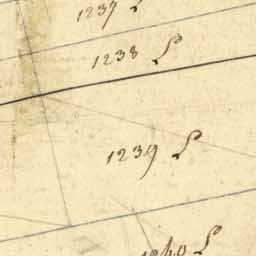 1237 L
1238 L
1239 L
1240 L